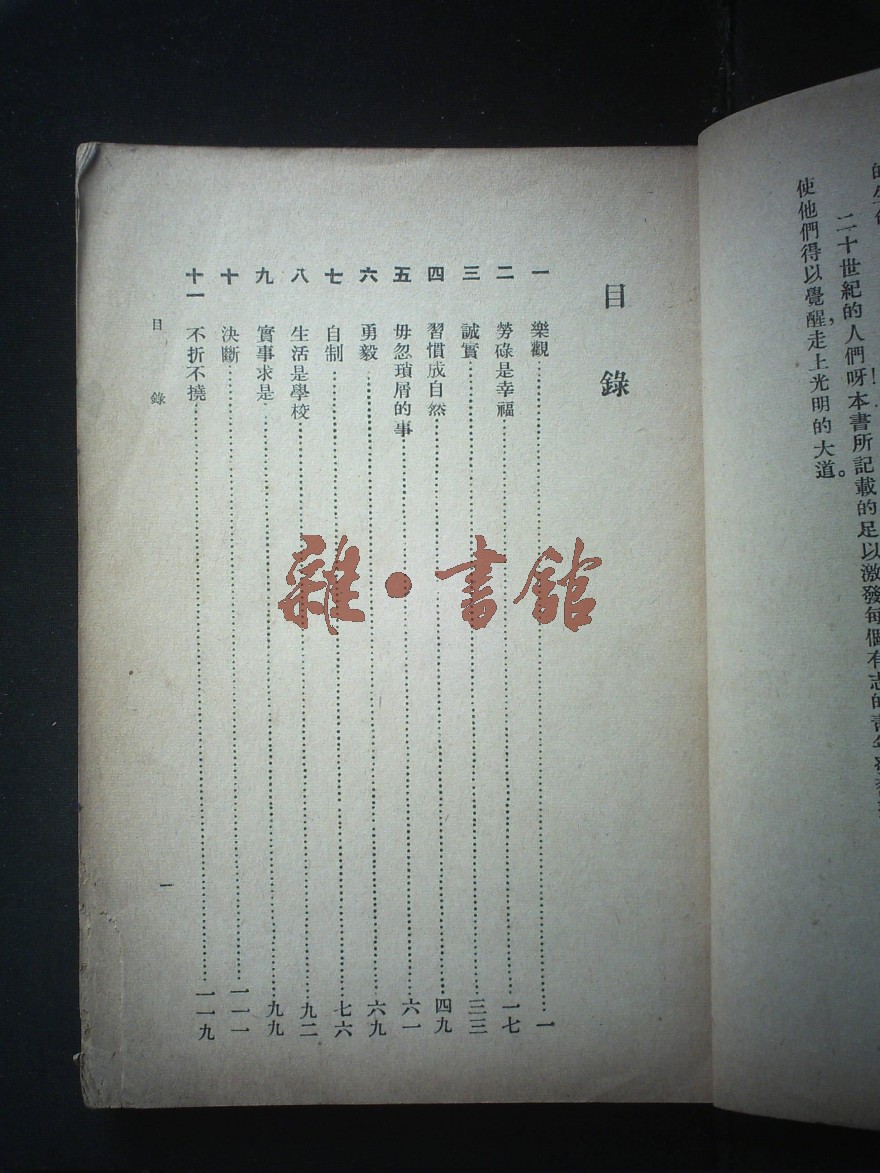 二十世紀的人們呀本書所記載的足以激發每個有志的青年
使他們得以覺醒,走上光明的大道。
目錄
一 樂觀……一
二 勞碌是幸福……一七
三 誠實……三三
四 習慣成自然……四九
五 毋忽瑣屑的事……六一
六 勇毅……六九
七 自制……七六
八 生活是學校……九二
九 實事求是……九九
十 決斷……一一一
十一 不折不撓……一一九
目錄
一
雜·書館